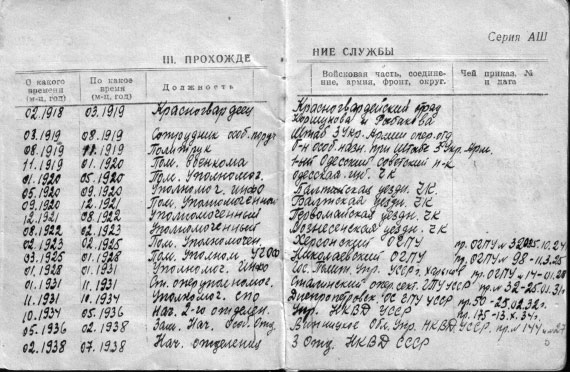 Серия АШ
III. ПРОХОЖДЕНИЕ СЛУЖБЫ
С какого времени (м-ц, год) По какое время (м-ц, год) Должность Войсковая часть, соединение, армия, фронт, округ. Чей приказ, № и дата
02.1918 03.1919 Красногвардеец Красногвардейский отряд
03.1919 08.1919 Сотрудник особ. Штаб 3 Укр. Армии
08.1919 11.1919 Политрук б-н особ. назн. при Штабе 3 Укр. Арм.
11.1919 01.1920 Пом. военкома 1-ый Одесский советский п-к
01.1920 05.1920 Пом. Уполномог. Одесская губ. ЧК
05.1920 09.1920 Уполномог. инфо Балтская уездн. ЧК
09.1920 12.1921 Пом. Уполномоченн Балтская уездн. ЧК
12.1921 08.1922 Уполномоченный Первомайская уездн. ЧК
08.1922 02.1923 Уполномоченный Вознесенская уездн. ЧК
02.1923 02.1925 Пом. Уполномочен. Херсонский ОГПУ
03.1925 01.1928 Пом. Уполном Николаевский ОГПУ пр. ОГПУ № 98-11.3.25
01.1928 01.1931 Уполномог. Инфо УССР г. Харьков пр. ОГПУ № 14-01
01.1931 11.1931 Ст. оперуполномог. Сталинский опер. сект. ГПУ УССР № 32-25.01.31 г.
11.1931 10.1934 Уполномог. СПО Днепропетровск. ОС ГПУ УССР пр. 50-25.02.32 г.
10.1934 05.1936 Нач. 2-го отделен. Упр. НКВД УССР пр. 175-13.X.34 г.
05.1936 02.1938 Зам. Нач. Особ. Отд. Винницкое Обл. Упр. НКВД УССР. пр. № 144
02.1938 07.1938 Нач. отделения 3 Отд. НКВД СССР